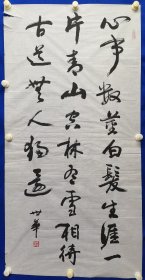 心事数茎白髪生涯一
片青山空林有雪相待
古道無人独還
世華